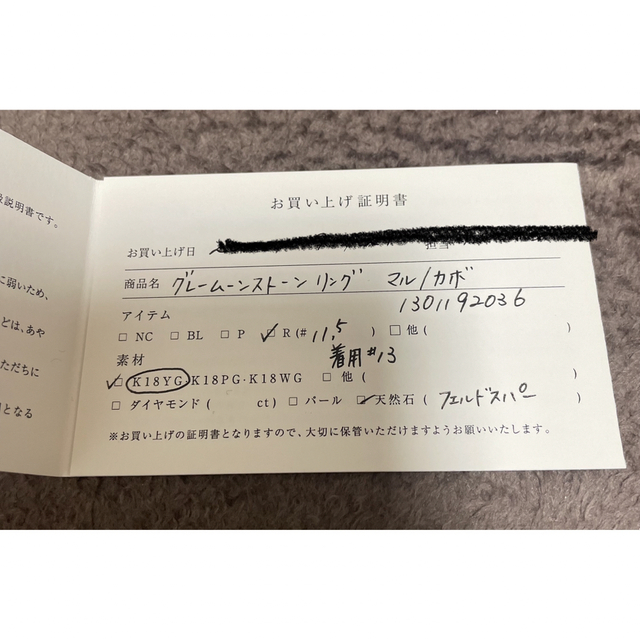 扱説明書です。
に弱いため、
どは、あや
ただちに
因となる
お買い上げ証明書
お買い上げ日
商品名 グレームーンストーン リング マル/カボ
1301192036
アイテム
□ NC □ BL □ P ☑ R(# 11,5 ) □ 他( )
素材 着用#13
☑ K18YG・K18PG・K18WG □ 他( )
□ ダイヤモンド( ct) □ パール ☑ 天然石( フェルドスパー )
※お買い上げの証明書となりますので、大切に保管いただけますようお願いいたします。